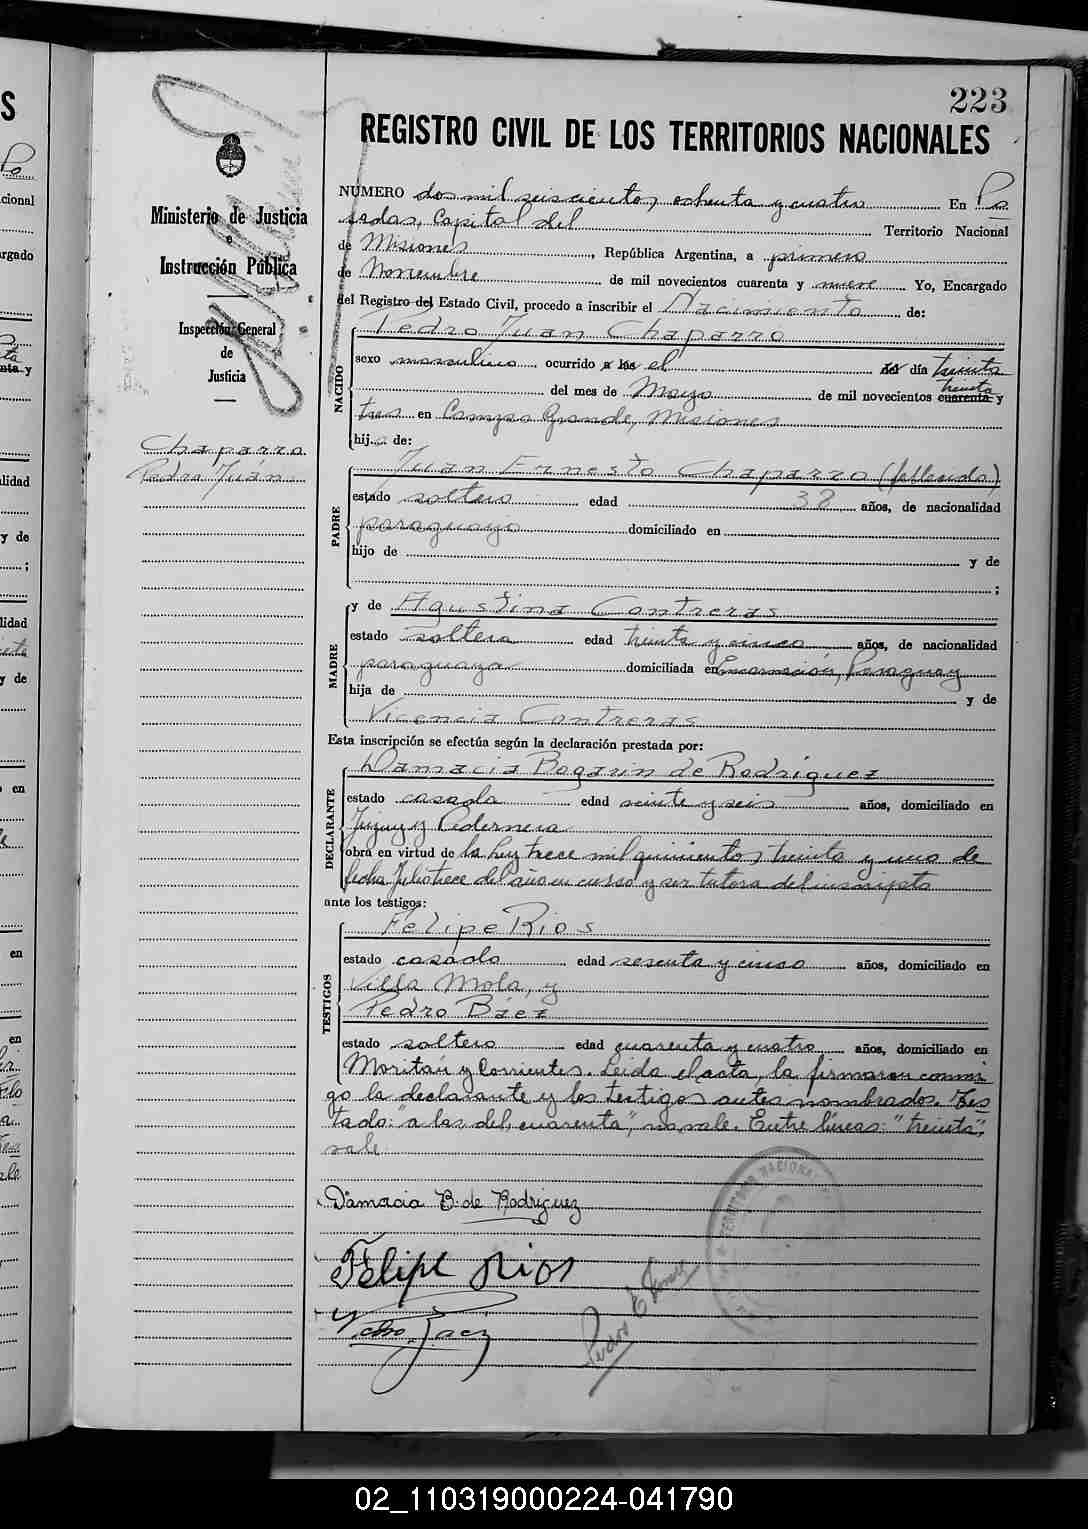 223
REGISTRO CIVIL DE LOS TERRITORIOS NACIONALES
Ministerio de Justicia
e
Instrucción Pública
Inspección General
de
Justicia
Chaparro
Pedro Juán
NUMERO dos mil seiscientos ochenta y cuatro En Po
sadas, Capital del Territorio Nacional
de Misiones, República Argentina, a primero
de Noviembre de mil novecientos cuarenta y nueve Yo, Encargado
del Registro del Estado Civil, procedo a inscribir el Nacimiento de:
NACIDO
Pedro Juan Chaparro
sexo masculino ocurrido a las el del día treinta
del mes de Mayo de mil novecientos cuarenta treinta y
tres en Campo Grande, Misiones
hij de:
PADRE
Juan Ernesto Chaparro (fallecido)
estado soltero edad 38 años, de nacionalidad
paraguayo domiciliado en
hijo de y de
;
MADRE
y de Agustina Contreras
estado soltera edad treinta y cinco años, de nacionalidad
paraguaya domiciliada en Encarnación, Paraguay
hija de y de
Vicencia Contreras
Esta inscripción se efectúa según la declaración prestada por:
DECLARANTE
Damacia Bogarin de Rodriguez
estado casada edad veinte y seis años, domiciliado en
Jujuy y Pedernera
obra en virtud de la ley trece mil quinientos treinta y uno de
fecha Julio trece del año en curso y ser tutora del inscripto
ante los testigos:
TESTIGOS
Felipe Rios
estado casado edad sesenta y cinco años, domiciliado en
Villa Mola, y
Pedro Báez
estado soltero edad cuarenta y cuatro años, domiciliado en
Moritán y Corrientes. Leida el acta, la firmaron conmi
go la declarante y los testigos antes nombrados. Tes
tado: "a las, del, cuarenta", no vale. Entre líneas: "treinta",
vale
Damacia B. de Rodriguez
Felipe Rios
Pedro Baez
02_110319000224-041790